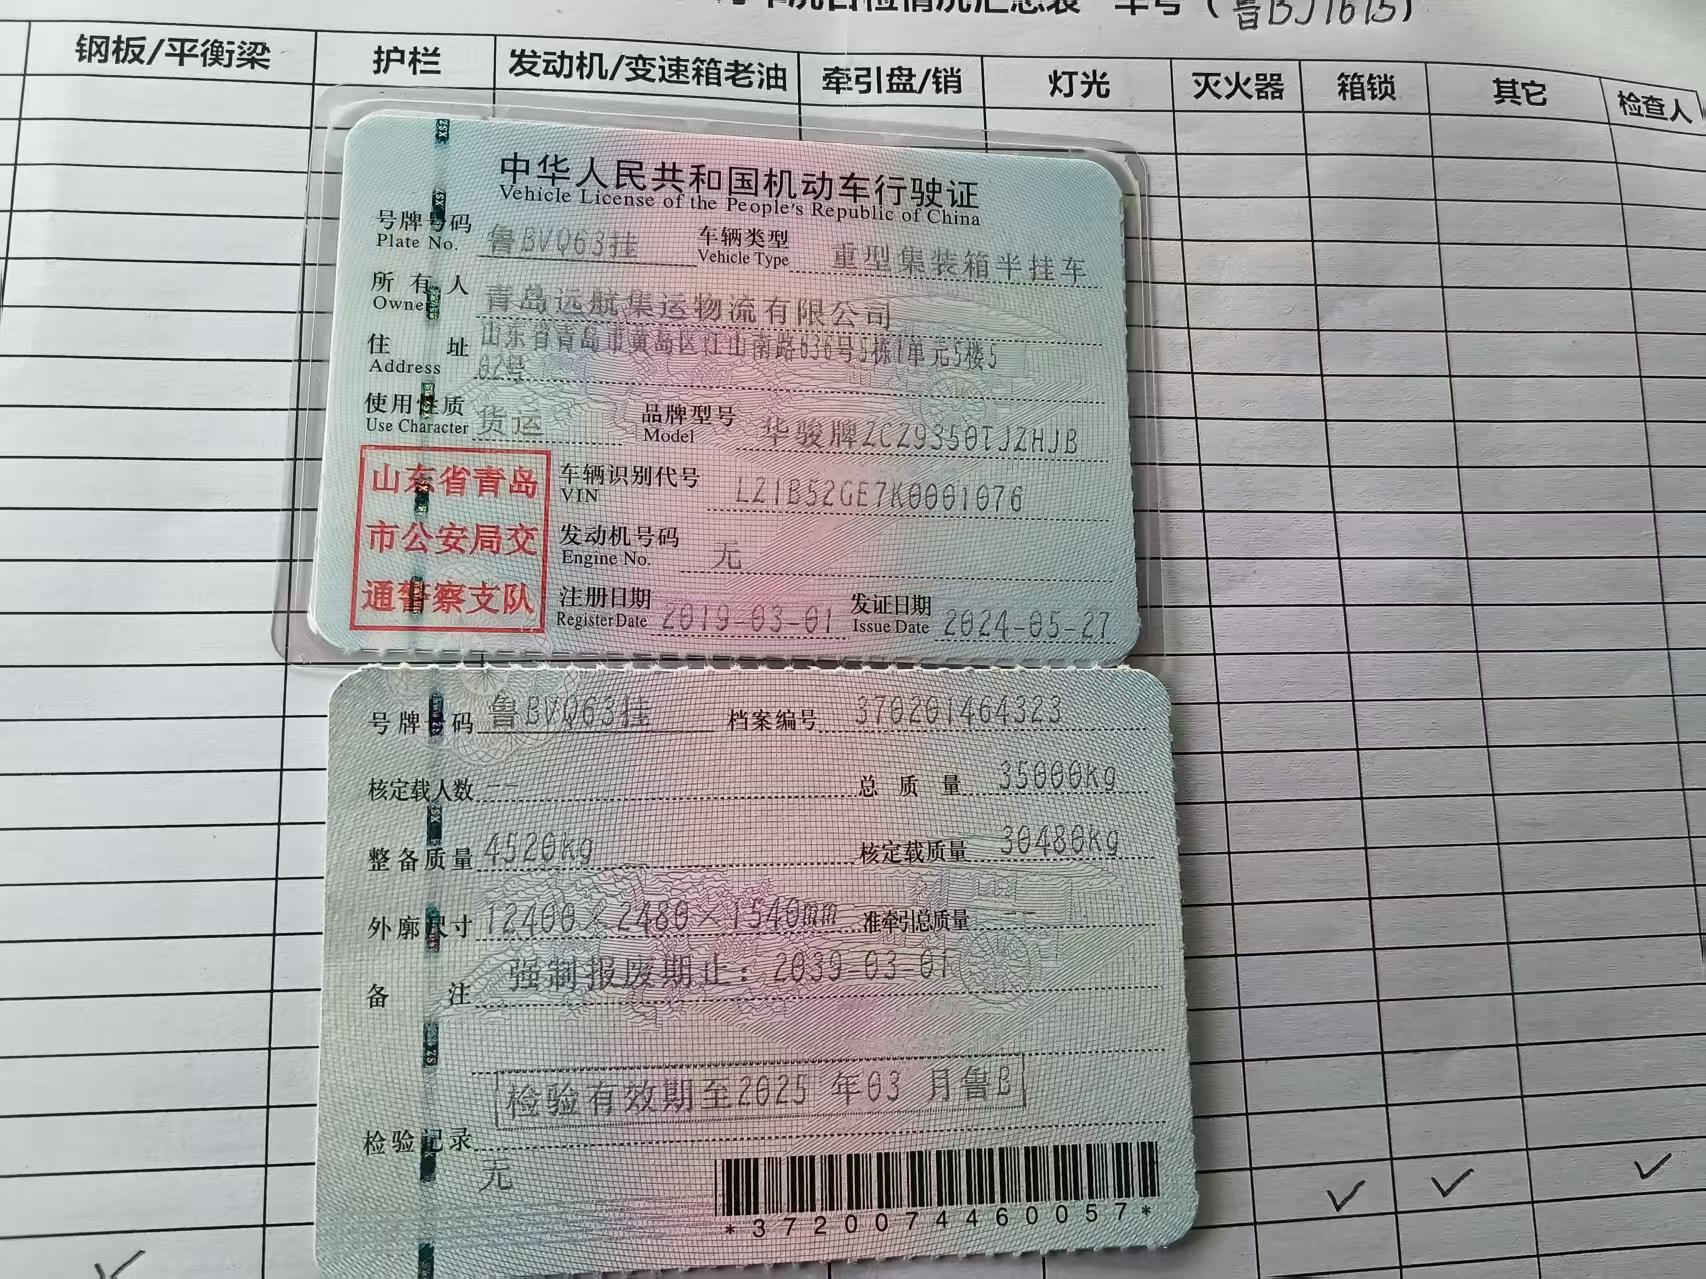 车号（鲁BJ1615）
钢板/平衡梁 护栏 发动机/变速箱老油 牵引盘/销 灯光 灭火器 箱锁 其它 检查人
中华人民共和国机动车行驶证
Vehicle License of the People's Republic of China
号牌号码 鲁BVQ63挂 车辆类型 重型集装箱半挂车
Plate No. Vehicle Type
所有人 青岛远航集运物流有限公司
Owner
住址 山东省青岛市黄岛区江山南路636号5栋1单元5楼5
Address 02号
使用性质 货运 品牌型号 华骏牌ZCZ9350TJZHJB
Use Character Model
山东省青岛
市公安局交
通警察支队
车辆识别代号 LZ1B52GE7K0001076
VIN
发动机号码 无
Engine No.
注册日期 2019-03-01 发证日期 2024-05-27
Register Date Issue Date
号牌号码 鲁BVQ63挂 档案编号 370201464323
核定载人数 -- 总质量 35000kg
整备质量 4520kg 核定载质量 30480kg
外廓尺寸 12400×2480×1540mm 准牵引总质量 --
备注 强制报废期止：2039-03-01
检验有效期至2025年03月鲁B
检验记录
无
*3720074460057*